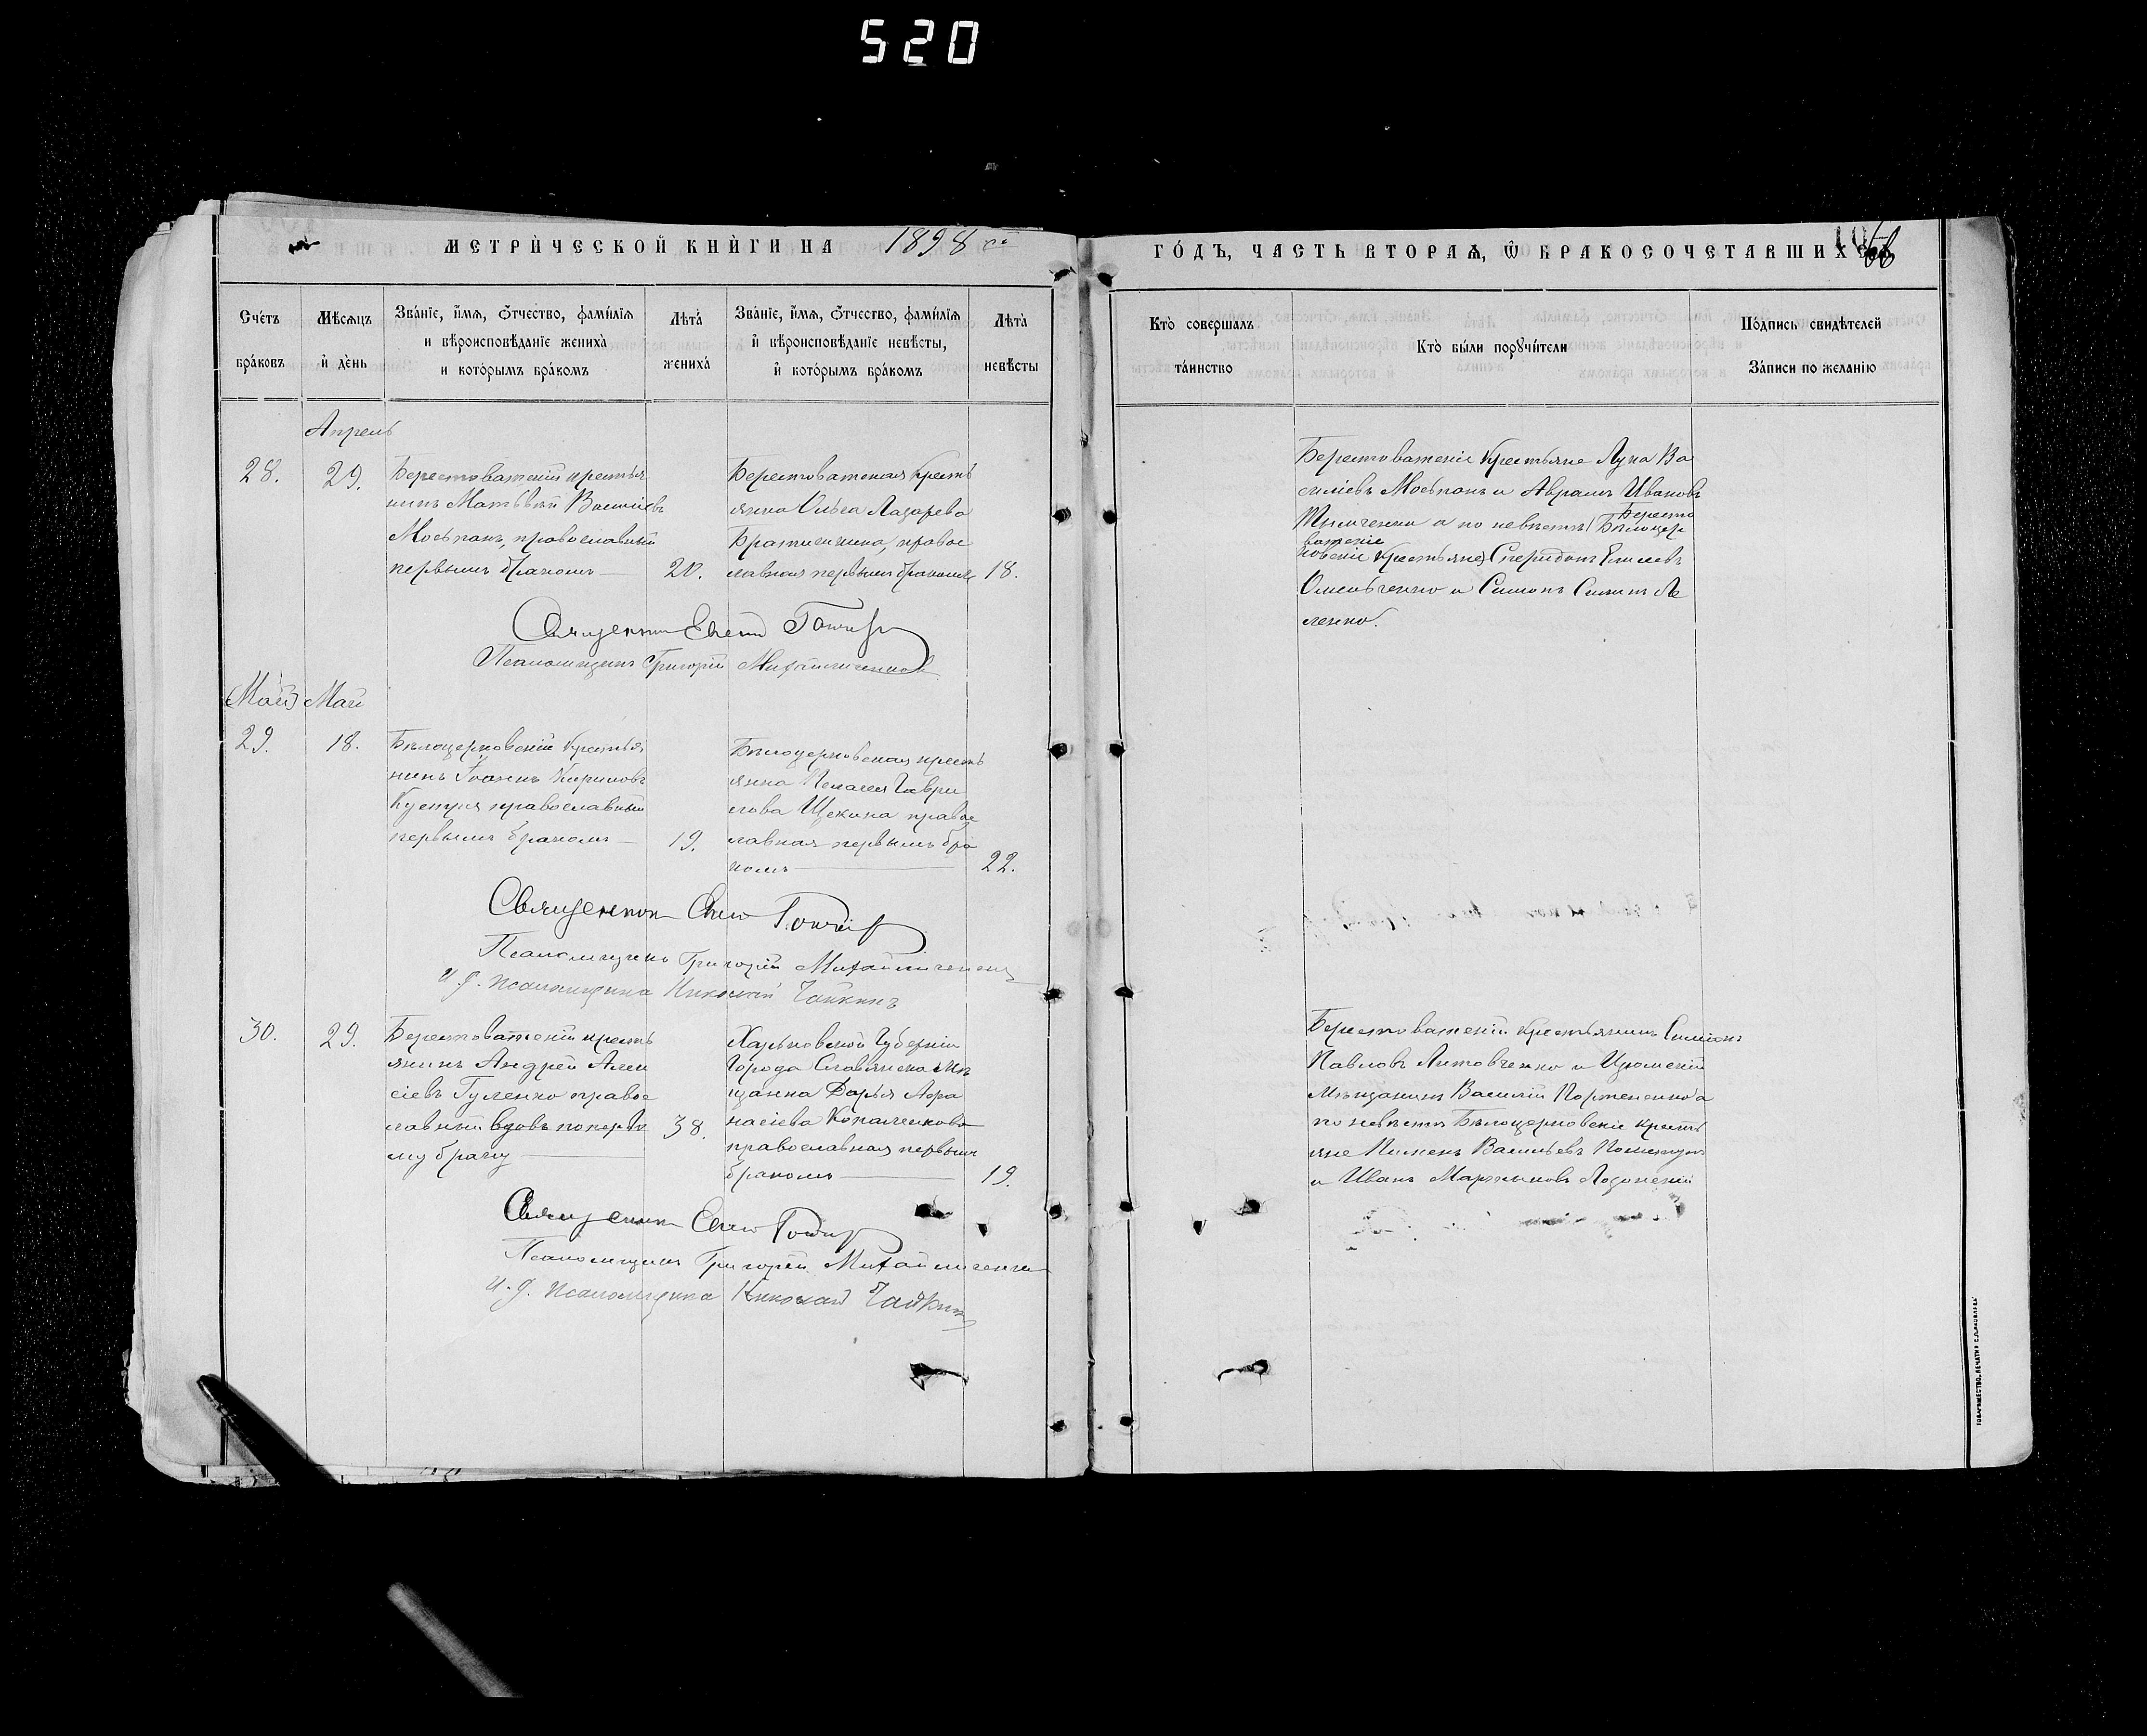 520
МЕТРИ́ЧЕСКОЙ КНИ́ГИ НА 1898 ой
ГО́ДЪ, ЧАСТЬ ВТОРАѦ, Ѡ БРАКОСОЧЕТАВШИХСѦ
Сче́тъ бра́ковъ
Мѣсѧцъ и҆ де́нь
Зва́нїе, и҆́мѧ, ѻ҆́тчество, фами́лїѧ
и вѣроисповѣ́данїе жениха̀
и кото́рымъ бра́комъ
Лѣта̀ жениха̀
Зва́нїе, и҆́мѧ, ѻ҆́тчество, фами́лїѧ
и҆ вѣроисповѣ́данїе невѣ́сты,
и҆ кото́рымъ бра́комъ
Лѣта̀ невѣ́сты
Кто̀ соверша́лъ
та́инство
Кто̀ бы́ли порꙋчи́тели
По́дпись свидѣ́телей
За́писи по жела́нїю
Апрель
28.
29.
Берестоватскій крестья
нинъ Матѳѣй Василіевъ
Моспанъ, православный
первымъ бракомъ
20.
Берестоватская кресть
янка Ольга Лазарева
православная первымъ бракомъ
18.
Берестоватскіе крестьяне Лука Ва
силіевъ Моспанъ и Аврамъ Ивановъ
а по невѣстѣ (Бѣлоцер
Бересто
ватскіе
ковскіе крестьяне) Спиридонъ
Омельченко и Симонъ
ленко.
Священникъ Евгеній
Псаломщикъ Григорій Михайличенко
(Май) Май
29.
18.
Бѣлоцерковскій крестья
нинъ Іоаннъ Кириловъ
православный
первымъ бракомъ
19.
Бѣлоцерковская кресть
янка Пелагея Гаври
лова Щекина право
славная первымъ бра
комъ
22.
Священникъ
Псаломщикъ Григорій Михайличенко
И. д. псаломщика Николай Чайкинъ
30.
29.
Берестоватскій кресть
янинъ Андрей Алек
сіевъ Гуленко право
славный вдовъ по перво
му браку
38.
Харьковской Губерніи
Города Славянска мѣ
щанка Дарья Аѳа
насіева
православная первымъ
бракомъ
19.
Берестоватскій крестьянинъ Симіонъ
Павловъ Литовченко и Изюмскій
мѣщанинъ Василій а
по невѣстѣ Бѣлоцерковскіе кресть
яне Пименъ Васильевъ
и Иванъ Мартыновъ
Священникъ
Псаломщикъ Григорій Михайличенко
И. д. псаломщика Николай Чайкинъ